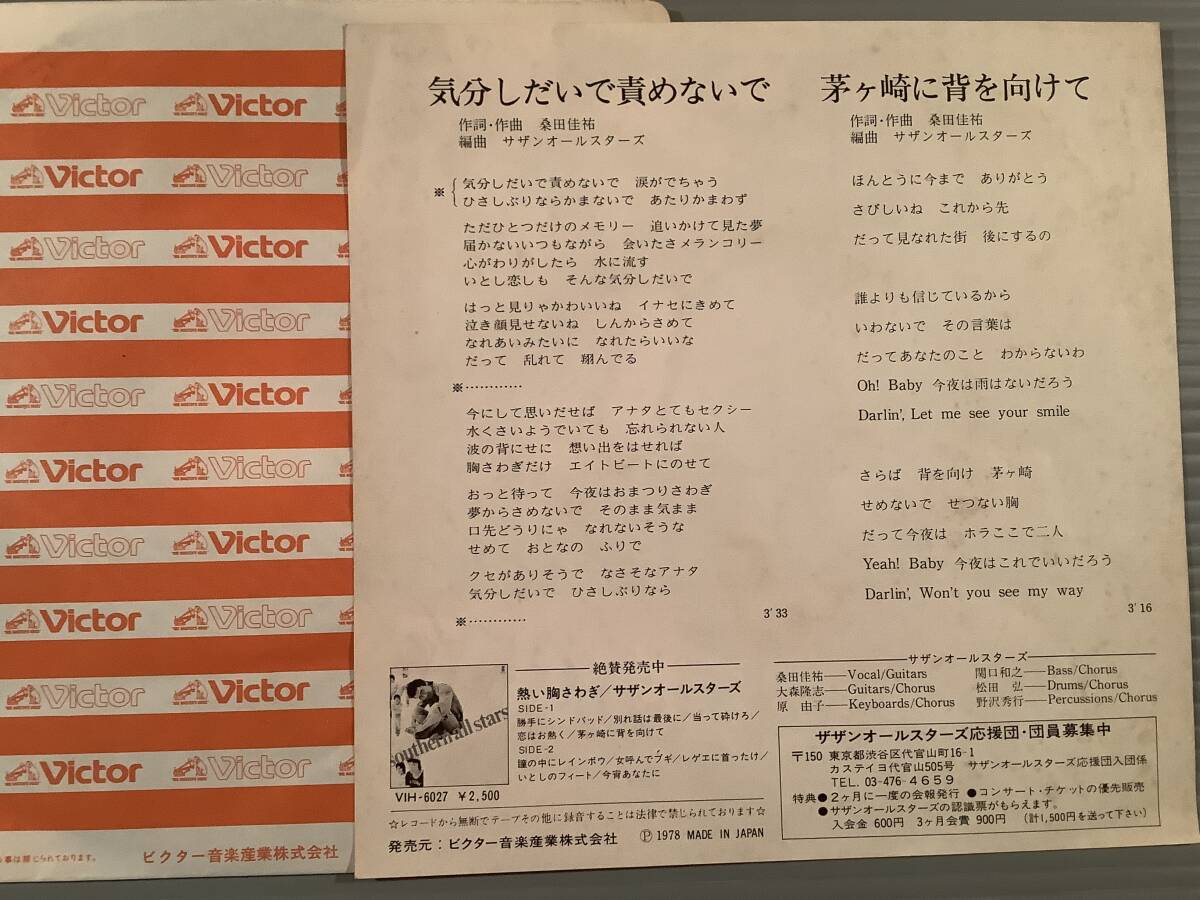 Victor Victor
Victor Victor
Victor Victor
Victor Victor
Victor Victor
Victor Victor
Victor Victor
Victor Victor
Victor Victor
Victor Victor
ビクター音楽産業株式会社
気分しだいで責めないで
作詞・作曲 桑田佳祐
編曲 サザンオールスターズ
※ 気分しだいで責めないで 涙がでちゃう
ひさしぶりならかまないで あたりかまわず
ただひとつだけのメモリー 追いかけて見た夢
届かないいつもながら 会いたさメランコリー
心がわりがしたら 水に流す
いとし恋しも そんな気分しだいで
はっと見りゃかわいいね イナセにきめて
泣き顔見せないね しんからさめて
なれあいみたいに なれたらいいな
だって 乱れて 翔んでる
※…………
今にして思いだせば アナタとてもセクシー
水くさいようでいても 忘れられない人
波の背にせに 想い出をはせれば
胸さわぎだけ エイトビートにのせて
おっと待って 今夜はおまつりさわぎ
夢からさめないで そのまま気まま
口先どうりにゃ なれないそうな
せめて おとなの ふりで
クセがありそうで なさそなアナタ
気分しだいで ひさしぶりなら
※…………
3′33
茅ヶ崎に背を向けて
作詞・作曲 桑田佳祐
編曲 サザンオールスターズ
ほんとうに今まで ありがとう
さびしいね これから先
だって見なれた街 後にするの
誰よりも信じているから
いわないで その言葉は
だってあなたのこと わからないわ
Oh! Baby 今夜は雨はないだろう
Darlin', Let me see your smile
さらば 背を向け 茅ヶ崎
せめないで せつない胸
だって今夜は ホラここで二人
Yeah! Baby 今夜はこれでいいだろう
Darlin', Won't you see my way
3′16
絶賛発売中
熱い胸さわぎ/サザンオールスターズ
SIDE-1
勝手にシンドバッド/別れ話は最後に/当って砕けろ/
恋はお熱く/茅ヶ崎に背を向けて
SIDE-2
瞳の中にレインボウ/女呼んでブギ/レゲエに首ったけ/
いとしのフィート/今宵あなたに
southern all stars
VIH-6027 ¥2,500
☆レコードから無断でテープその他に録音することは法律で禁じられております☆
発売元:ビクター音楽産業株式会社 Ⓟ1978 MADE IN JAPAN
サザンオールスターズ
桑田佳祐——Vocal/Guitars 関口和之——Bass/Chorus
大森隆志——Guitars/Chorus 松田 弘——Drums/Chorus
原 由子——Keyboards/Chorus 野沢秀行——Percussions/Chorus
サザンオールスターズ応援団・団員募集中
〒150 東京都渋谷区代官山町16-1
カステイヨ代官山505号 サザンオールスターズ応援団入団係
TEL. 03-476-4659
特典●2ヶ月に一度の会報発行 ●コンサート・チケットの優先販売
●サザンオールスターズの認識票がもらえます。
入会金 600円 3ヶ月会費 900円 (計1,500円を送って下さい)